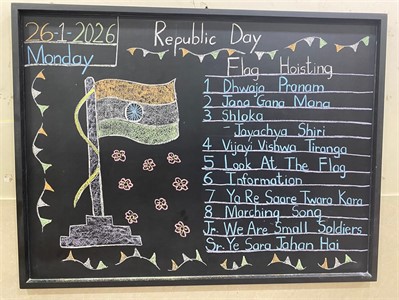 26-1-2026
Monday
Republic Day
Flag Hoisting
1 Dhwaja Pranam
2 Jana Gana Mana
3 Shloka
- Jayachya Shiri
4 Vijayi Vishwa Tiranga
5 Look At The Flag
6 Information
7 Ya Re Saare Twara Kara
8 Marching Song
Jr. We Are Small Soldiers
Sr. Ye Sara Jahan Hai